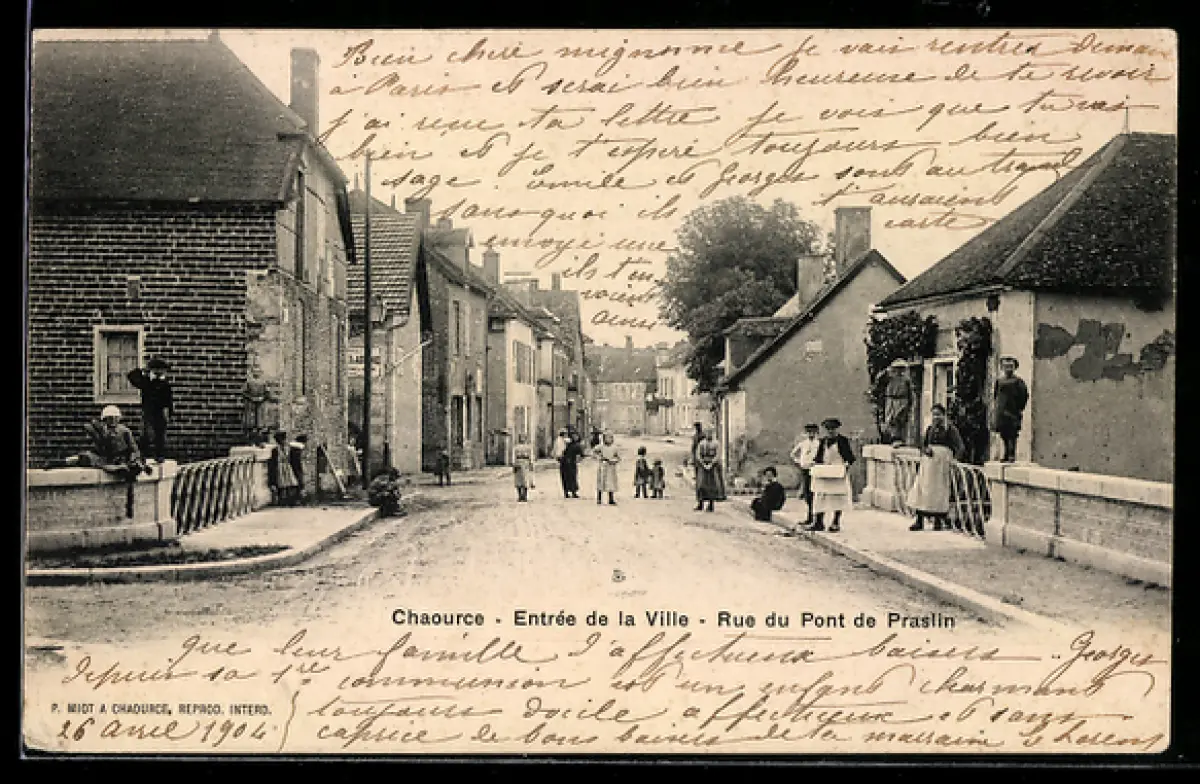 Bien cheré mignonne je vais rentrer Demain
à Paris et serai bien heureuse de te revoir
j'ai reçue ta lettre je vois que tu vas
bien et je t'esperé toujours bien
sage. Emile et Georges sont au travail
sans quoi ils t'auraient
envoyé une carte
ils t'en
ainsi
Chaource - Entrée de la Ville - Rue du Pont de Praslin
que leur famille d'affectueux baisers. Georges
Depuis sa 1re communion est un enfant charmant
P. MIOT A CHAOURCE, REPROD. INTERD.
toujours docile affectueux et sans
26 Avril 1904
caprice de bons baisers de ta marraine G